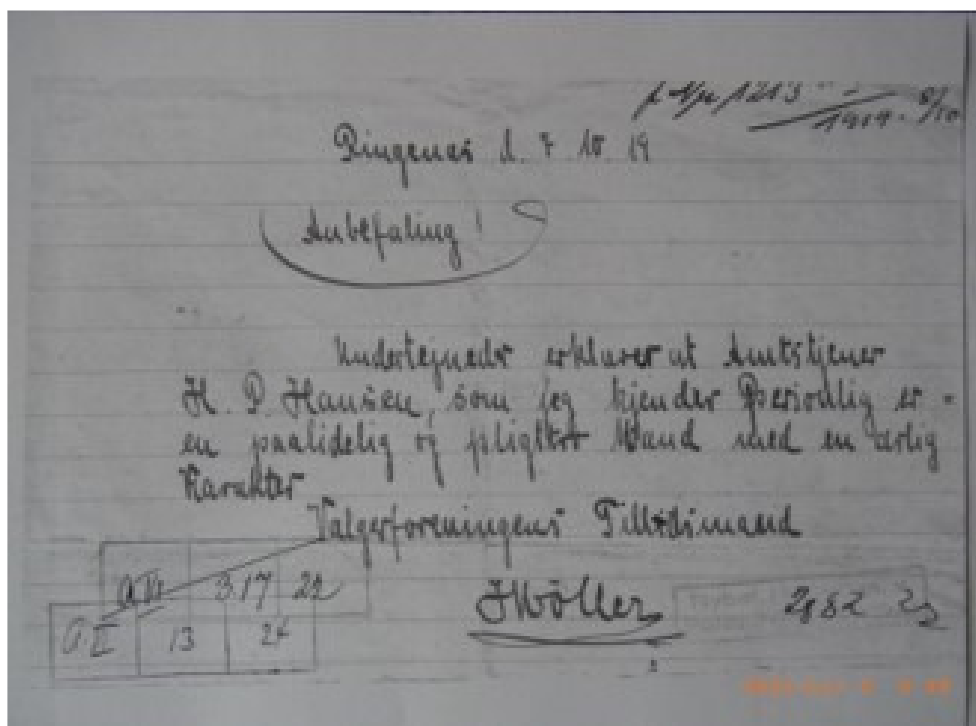 1213
1919. 8/10
Ringenæs d. 7 10 19
Anbefaling!
Undertejnede erklærer at Amtstjener
H. P. Hansen, som jeg kjender Personlig er
en paalidelig og pligttro Mand med en ærlig
Karakter
Vælgerforeningens Tillidsmand
HMöller
3.17 22
A.II 13 24
2982